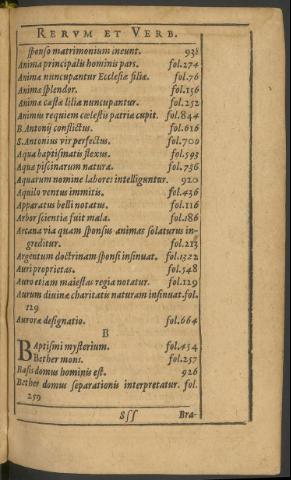 RERVM ET VERB.
sponso matrimonium ineunt. 938
Anima principalis hominis pars. fol.274
Animæ nuncupantur Ecclesiæ filiæ. fol.76
Animæ splendor. fol.156
Animæ castæ lilia nuncupantur. fol.252
Animus requiem cœlestis patriæ cupit. fol.844
B. Antonij conflictus. fol.616
S. Antonius vir perfectus. fol.700
Aqua baptismatis flexus. fol.593
Aqua piscinarum natura. fol.736
Aquarum nomine labores intelliguntur. 920
Aquilo ventus immitis. fol.436
Apparatus belli notatus. fol.116
Arbor scientiæ fuit mala. fol.186
Arcana via quam sponsus animas solaturus in-
greditur. fol.213
Argentum doctrinam sponsi insinuat. fol.1322
Auri proprietas. fol.548
Auro etiam maiestas regia notatur. fol.129
Aurum diuinæ charitatis naturam insinuat. fol.
129
Auroræ designatio. fol.664
B
BAptismi mysterium. fol.454
Bether mons. fol.257
Basis domus hominis est. 926
Bether domus separationis interpretatur. fol.
259
Sſſ Bra-